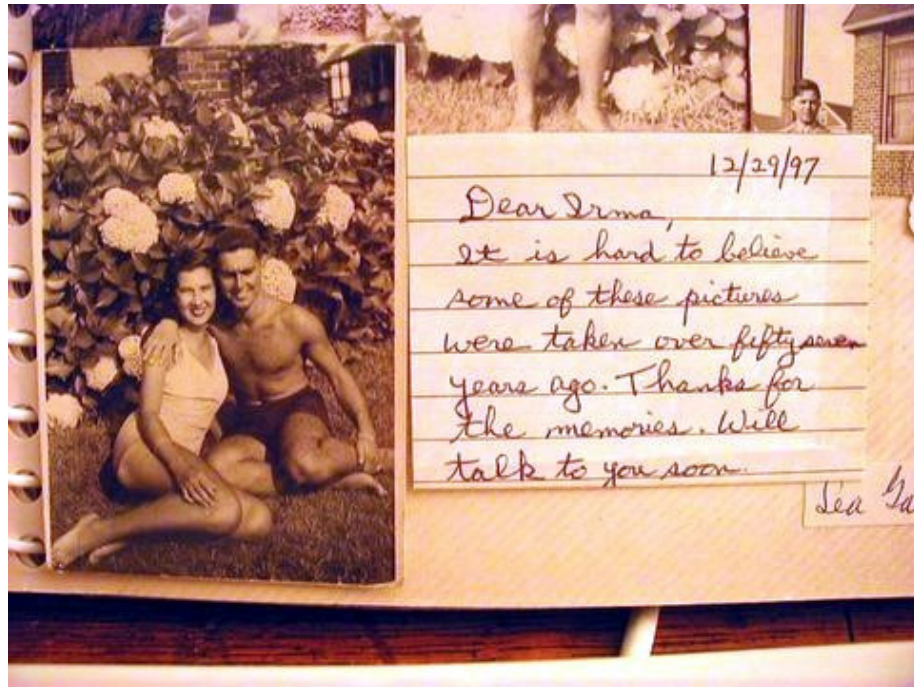 12/29/97
Dear Irma,
It is hard to believe
some of these pictures
were taken over fifty seven
years ago. Thanks for
the memories. Will
talk to you soon.
Sea Ga